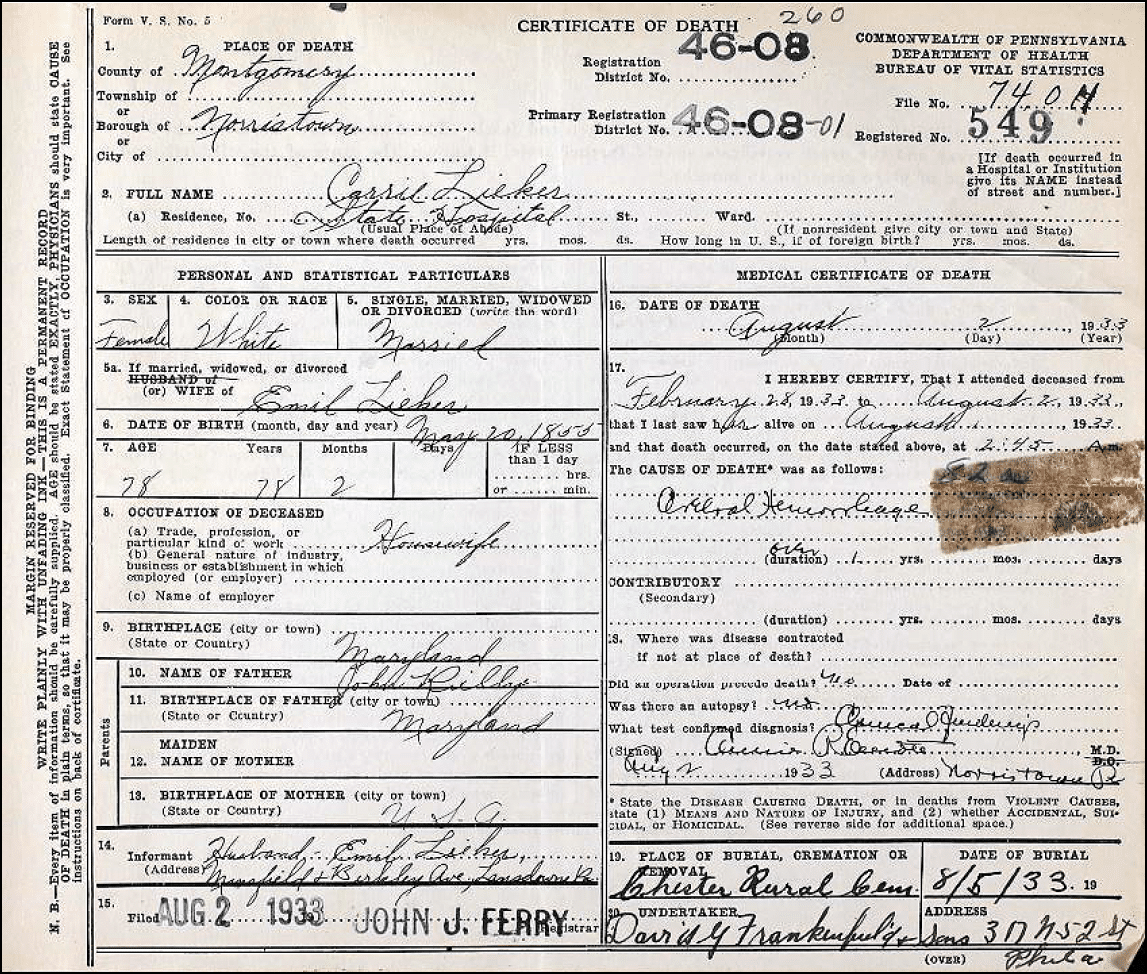 Form V. S. No. 5
CERTIFICATE OF DEATH 260
COMMONWEALTH OF PENNSYLVANIA
DEPARTMENT OF HEALTH
BUREAU OF VITAL STATISTICS
1. PLACE OF DEATH
County of Montgomery
Township of
or
Borough of Norristown
or
City of
Registration District No. 46-08
Primary Registration District No. 46-08-01
File No. 7404
Registered No. 549
[If death occurred in
a Hospital or Institution
give its NAME instead
of street and number.]
2. FULL NAME Carrie Lieker
(a) Residence, No. State Hospital St., Ward.
(Usual Place of Abode) (If nonresident give city or town and State)
Length of residence in city or town where death occurred yrs. mos. ds. How long in U. S., if of foreign birth? yrs. mos. ds.
PERSONAL AND STATISTICAL PARTICULARS
3. SEX 4. COLOR OR RACE 5. SINGLE, MARRIED, WIDOWED
OR DIVORCED (write the word)
Female White Married
5a. If married, widowed, or divorced
HUSBAND of
(or) WIFE of Emil Lieker
6. DATE OF BIRTH (month, day and year) May 20, 1855
7. AGE Years Months Days IF LESS
than 1 day
hrs.
or min.
78 78 2
8. OCCUPATION OF DECEASED
(a) Trade, profession, or
particular kind of work Housewife
(b) General nature of industry,
business or establishment in which
employed (or employer)
(c) Name of employer
9. BIRTHPLACE (city or town)
(State or Country) Maryland
Parents
10. NAME OF FATHER John Rielly
11. BIRTHPLACE OF FATHER (city or town)
(State or Country) Maryland
MAIDEN
12. NAME OF MOTHER
13. BIRTHPLACE OF MOTHER (city or town)
(State or Country) U S A.
14. Informant Husband, Emil Lieker,
(Address) & Berkley Ave. Lansdowne Pa
15. Filed AUG 2 1933 JOHN J. FERRY Registrar
MEDICAL CERTIFICATE OF DEATH
16. DATE OF DEATH
August 2, 1933
(Month) (Day) (Year)
17. I HEREBY CERTIFY, That I attended deceased from
February 28, 1933 to August 2, 1933,
that I last saw her alive on August 1, 1933
and that death occurred, on the date stated above, at 2:45 A.m.
The CAUSE OF DEATH* was as follows:
82a
Cerebral Hemorrhage
over
(duration) 1 yrs. mos. days
CONTRIBUTORY
(Secondary)
(duration) yrs. mos. days
18. Where was disease contracted
if not at place of death?
Did an operation precede death? No Date of
Was there an autopsy? no
What test confirmed diagnosis? Clinical findings
(Signed) Annie R. M.D.
D.O.
Aug 2 1933 (Address) Norristown Pa
* State the DISEASE CAUSING DEATH, or in deaths from VIOLENT CAUSES,
state (1) MEANS AND NATURE OF INJURY, and (2) whether ACCIDENTAL, SUI-
CIDAL, OR HOMICIDAL. (See reverse side for additional space.)
19. PLACE OF BURIAL, CREMATION OR
REMOVAL
Chester Rural Cem.
DATE OF BURIAL
8/5/33. 19
20. UNDERTAKER ADDRESS
David G Frankenfield & Sons 317 N 52 St
(OVER) Phila
MARGIN RESERVED FOR BINDING
WRITE PLAINLY WITH UNFADING INK—THIS IS A PERMANENT RECORD
N. B.—Every item of information should be carefully supplied. AGE should be stated EXACTLY. PHYSICIANS should state CAUSE
OF DEATH in plain terms, so that it may be properly classified. Exact Statement of OCCUPATION is very important. See
instructions on back of certificate.